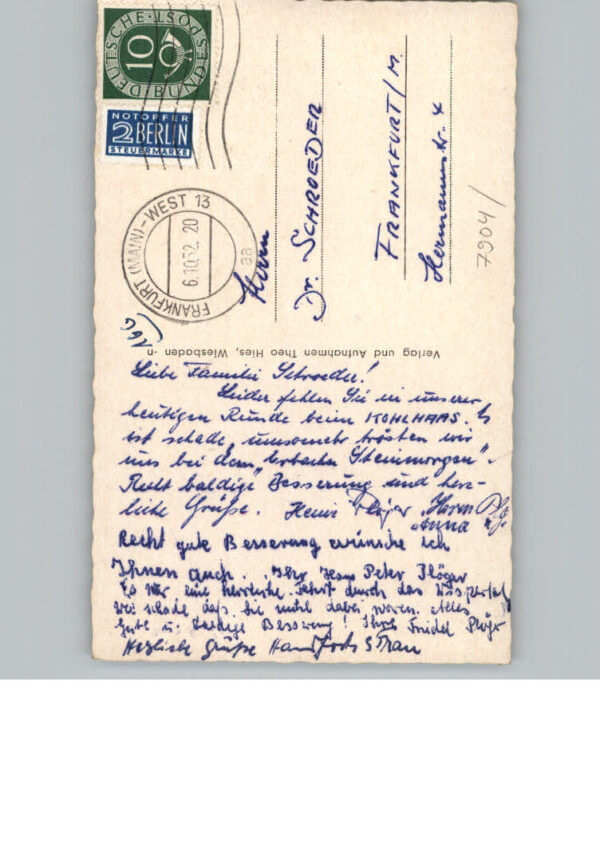 DEUTSCHE BUNDESPOST
10
NOTOPFER
2 BERLIN
STEUERMARKE
FRANKFURT (MAIN)-WEST 13
6.10.52.20
aa
Herrn
Dr. SCHROEDER
FRANKFURT/M.
Hermannstr. 4
7904/
Verlag und Aufnahmen Theo Hies, Wiesbaden
Liebe Familie Schroeder!
Leider fehlen Sie in unserer
heutigen Runde beim KOHLHAAS. Es
ist schade, umsomehr trösten wir
uns bei dem „ Steinmorgen".
Recht baldige Besserung und herz-
liche Grüße. Heini Plöger
Anna
Recht gute Besserung wünsche ich
Ihnen auch. Ihr Hans Peter Plöger
Es war eine herrliche Fahrt durch das Wispertal
wie schade daß Sie nicht dabei waren. Alles
Gute u. baldige Besserung! Ihre Friedel Plöger
Herzliche Grüße Frau